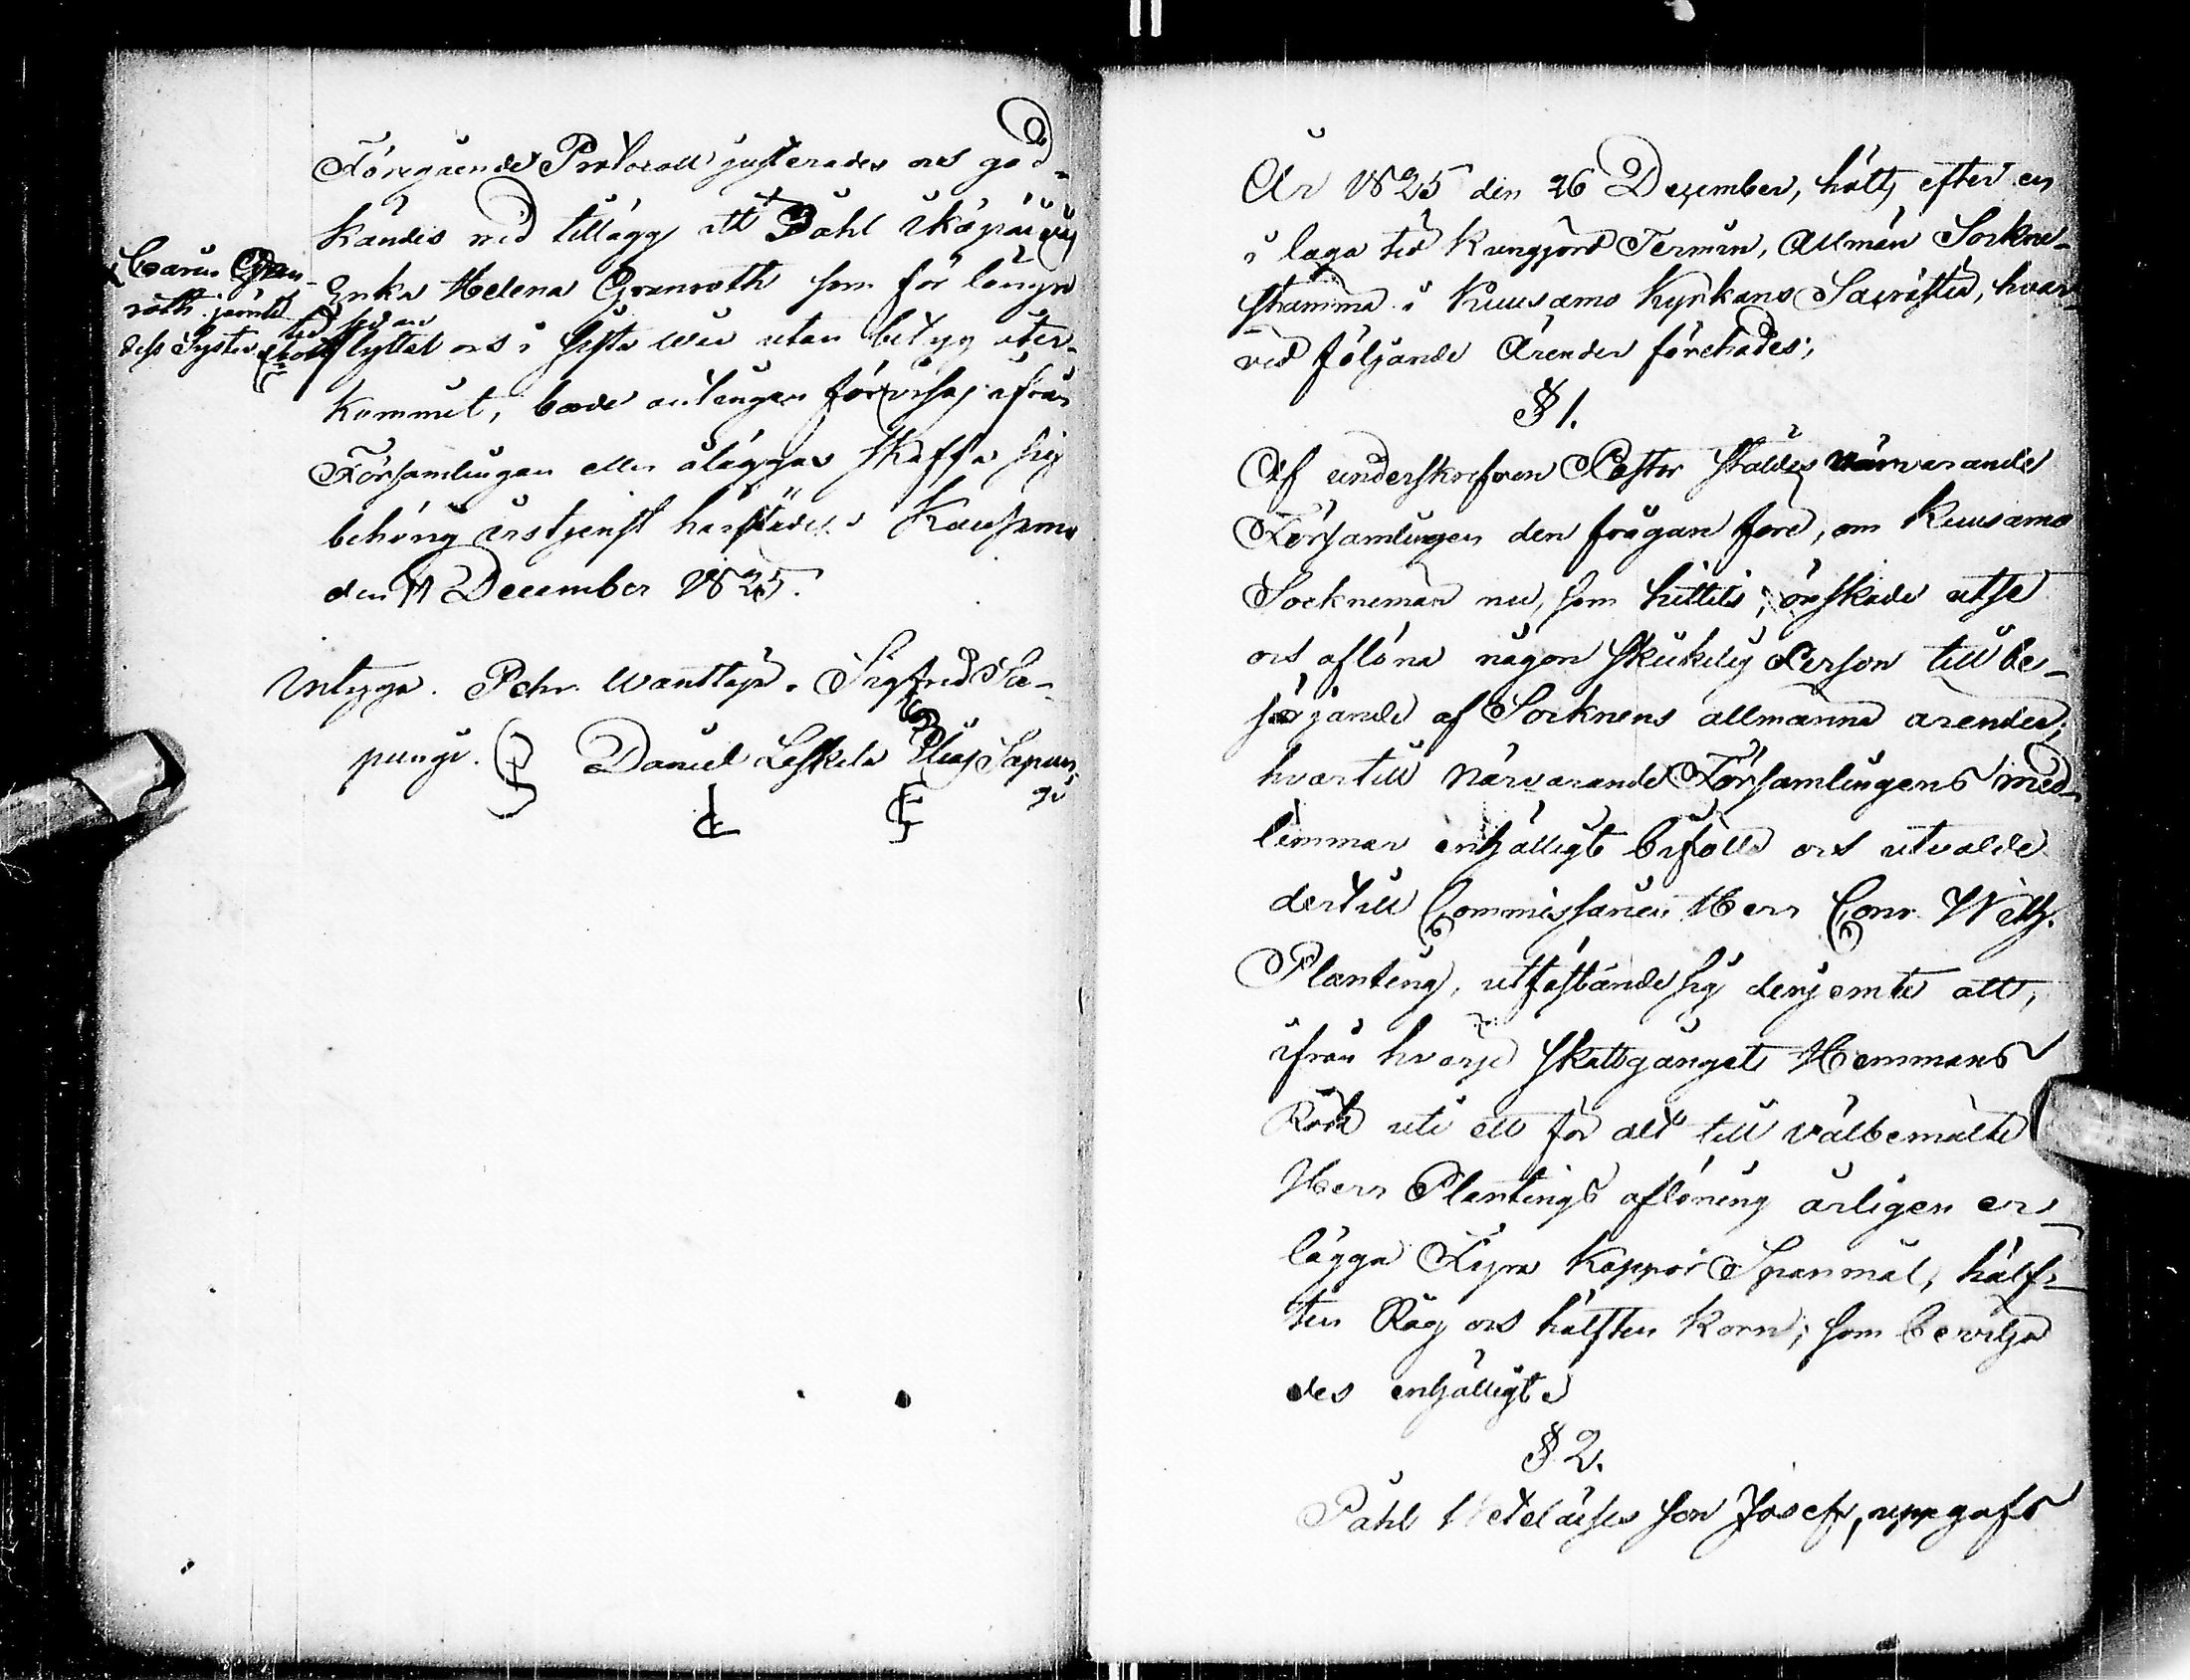 Föregående Protocoll justerades och god-
kändes med tillägg att Påhl
Enka Helena Granroth som för länge
tid sedan
flyttat och i sista wår utan betyg åter-
kommit, borde antingen förvisas ifrån
Församlingen eller åläggas skaffa sig
behörig årstjenst härstädes. Kuusamo
den 11 December 1825.
Carin Gran-
roth jämte
dess Syster
intyga. Pehr Wanttaja. Sigfrid Sa-
pungi. Daniel Leskelä Elias Sapun-
gi
År 1825 den 26 December, hölts efter en
i laga tid kungjord Termin, Allmän Sockne-
stämma i Kuusamo Kyrkans Sacristia, hvar-
vid följande Ärender förehades;
§ 1.
Af underskrefven Pastor stäldes närvarande
Församlingen den frågan före, om Kuusamo
Socknemän nu, som hittils, önskade utse
och aflöna någon skickelig Person till be-
sörjande af Socknens allmänna ärender;
hvartill närvarande Församlingens med-
lemmar enhälligt biföllo och utvalde
dertill Commissarien Herr Conr. Wilh.
Planting, utfästande sig derjemte att,
ifrån hvarje skattgångets Hemmans
Rök uti ett för allt till välbemälte
Herr Plantings aflöning årligen er-
lägga Fyra Kappor Spanmål, hälf-
ten Råg och hälften Korn; som bevilja
des enhälligt.
§ 2.
Påhl Määttäs son Josef, uppgaf